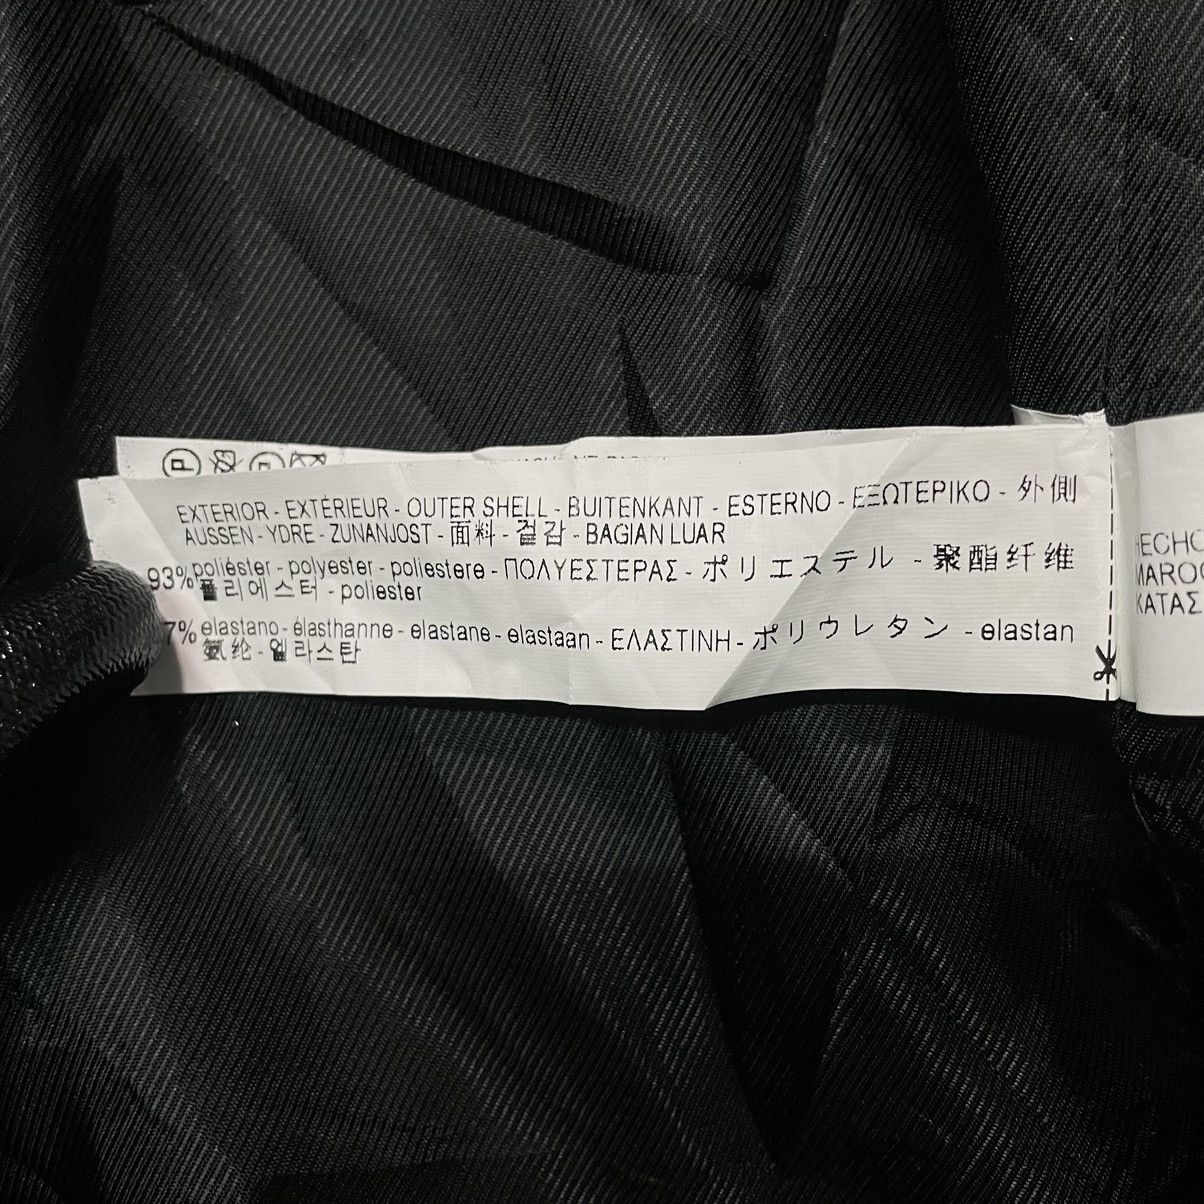 EXTERIOR - EXTÉRIEUR - OUTER SHELL - BUITENKANT - ESTERNO - ΕΞΩΤΕΡΙΚΟ - 外側
AUSSEN - YDRE - ZUNANJOST - 面料 - 겉감 - BAGIAN LUAR
93% poliéster - polyester - poliestere - ΠΟΛΥΕΣΤΕΡΑΣ - ポリエステル - 聚酯纤维
폴리에스터 - poliester
7% elastano - élasthanne - elastane - elastaan - ΕΛΑΣΤΙΝΗ - ポリウレタン - elastan
氨纶 - 엘라스탄
ECHO
MARO
ΚΑΤΑΣ